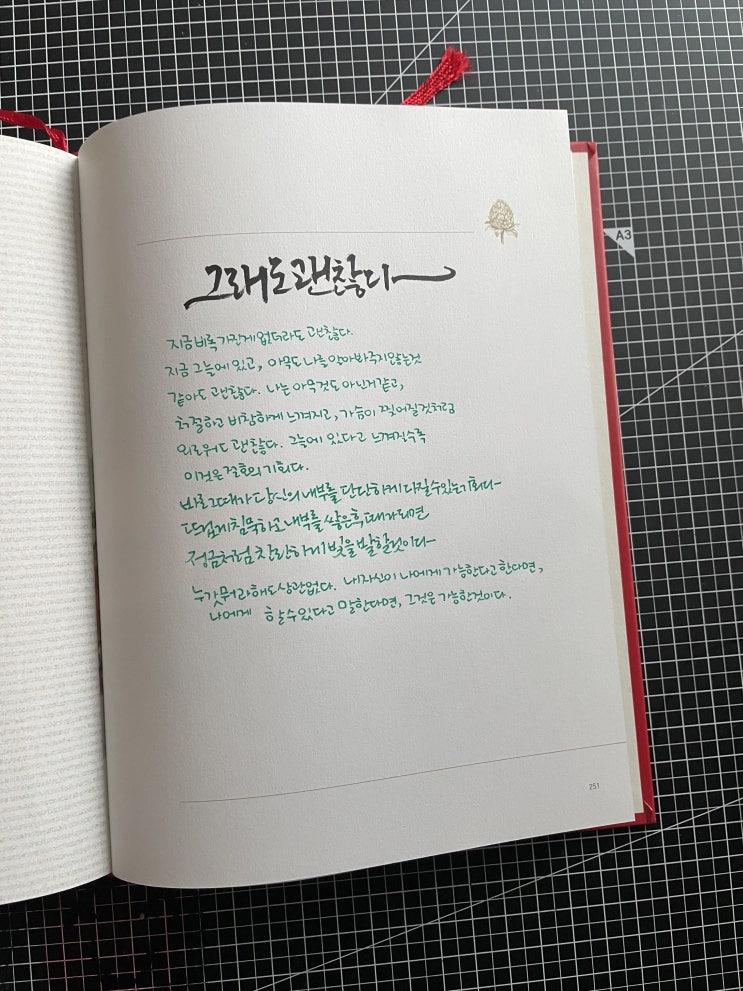 A3
그래도 괜찮다
지금 비록 가진게 없더라도 괜찮다.
지금 그늘에 있고, 아무도 나를 알아봐주지 않는것
같아도 괜찮다. 나는 아무것도 아닌거 같고,
처절하고 비참하게 느껴지고, 가슴이 찢어질것처럼
외로워도 괜찮다. 그늘에 있다고 느껴질수록
이것은 절호의 기회다.
바로 그때가 당신의 내부를 단단하게 다질 수 있는 기회다
뜨겁게 침묵하고 내부를 쌓은 후, 때가 되면
정금처럼 찬란하게 빛을 발할 것이다
누가 뭐라해도 상관없다. 내 자신이 나에게 가능하다고 한다면,
나에게 할 수 있다고 말한다면, 그것은 가능한 것이다.
251